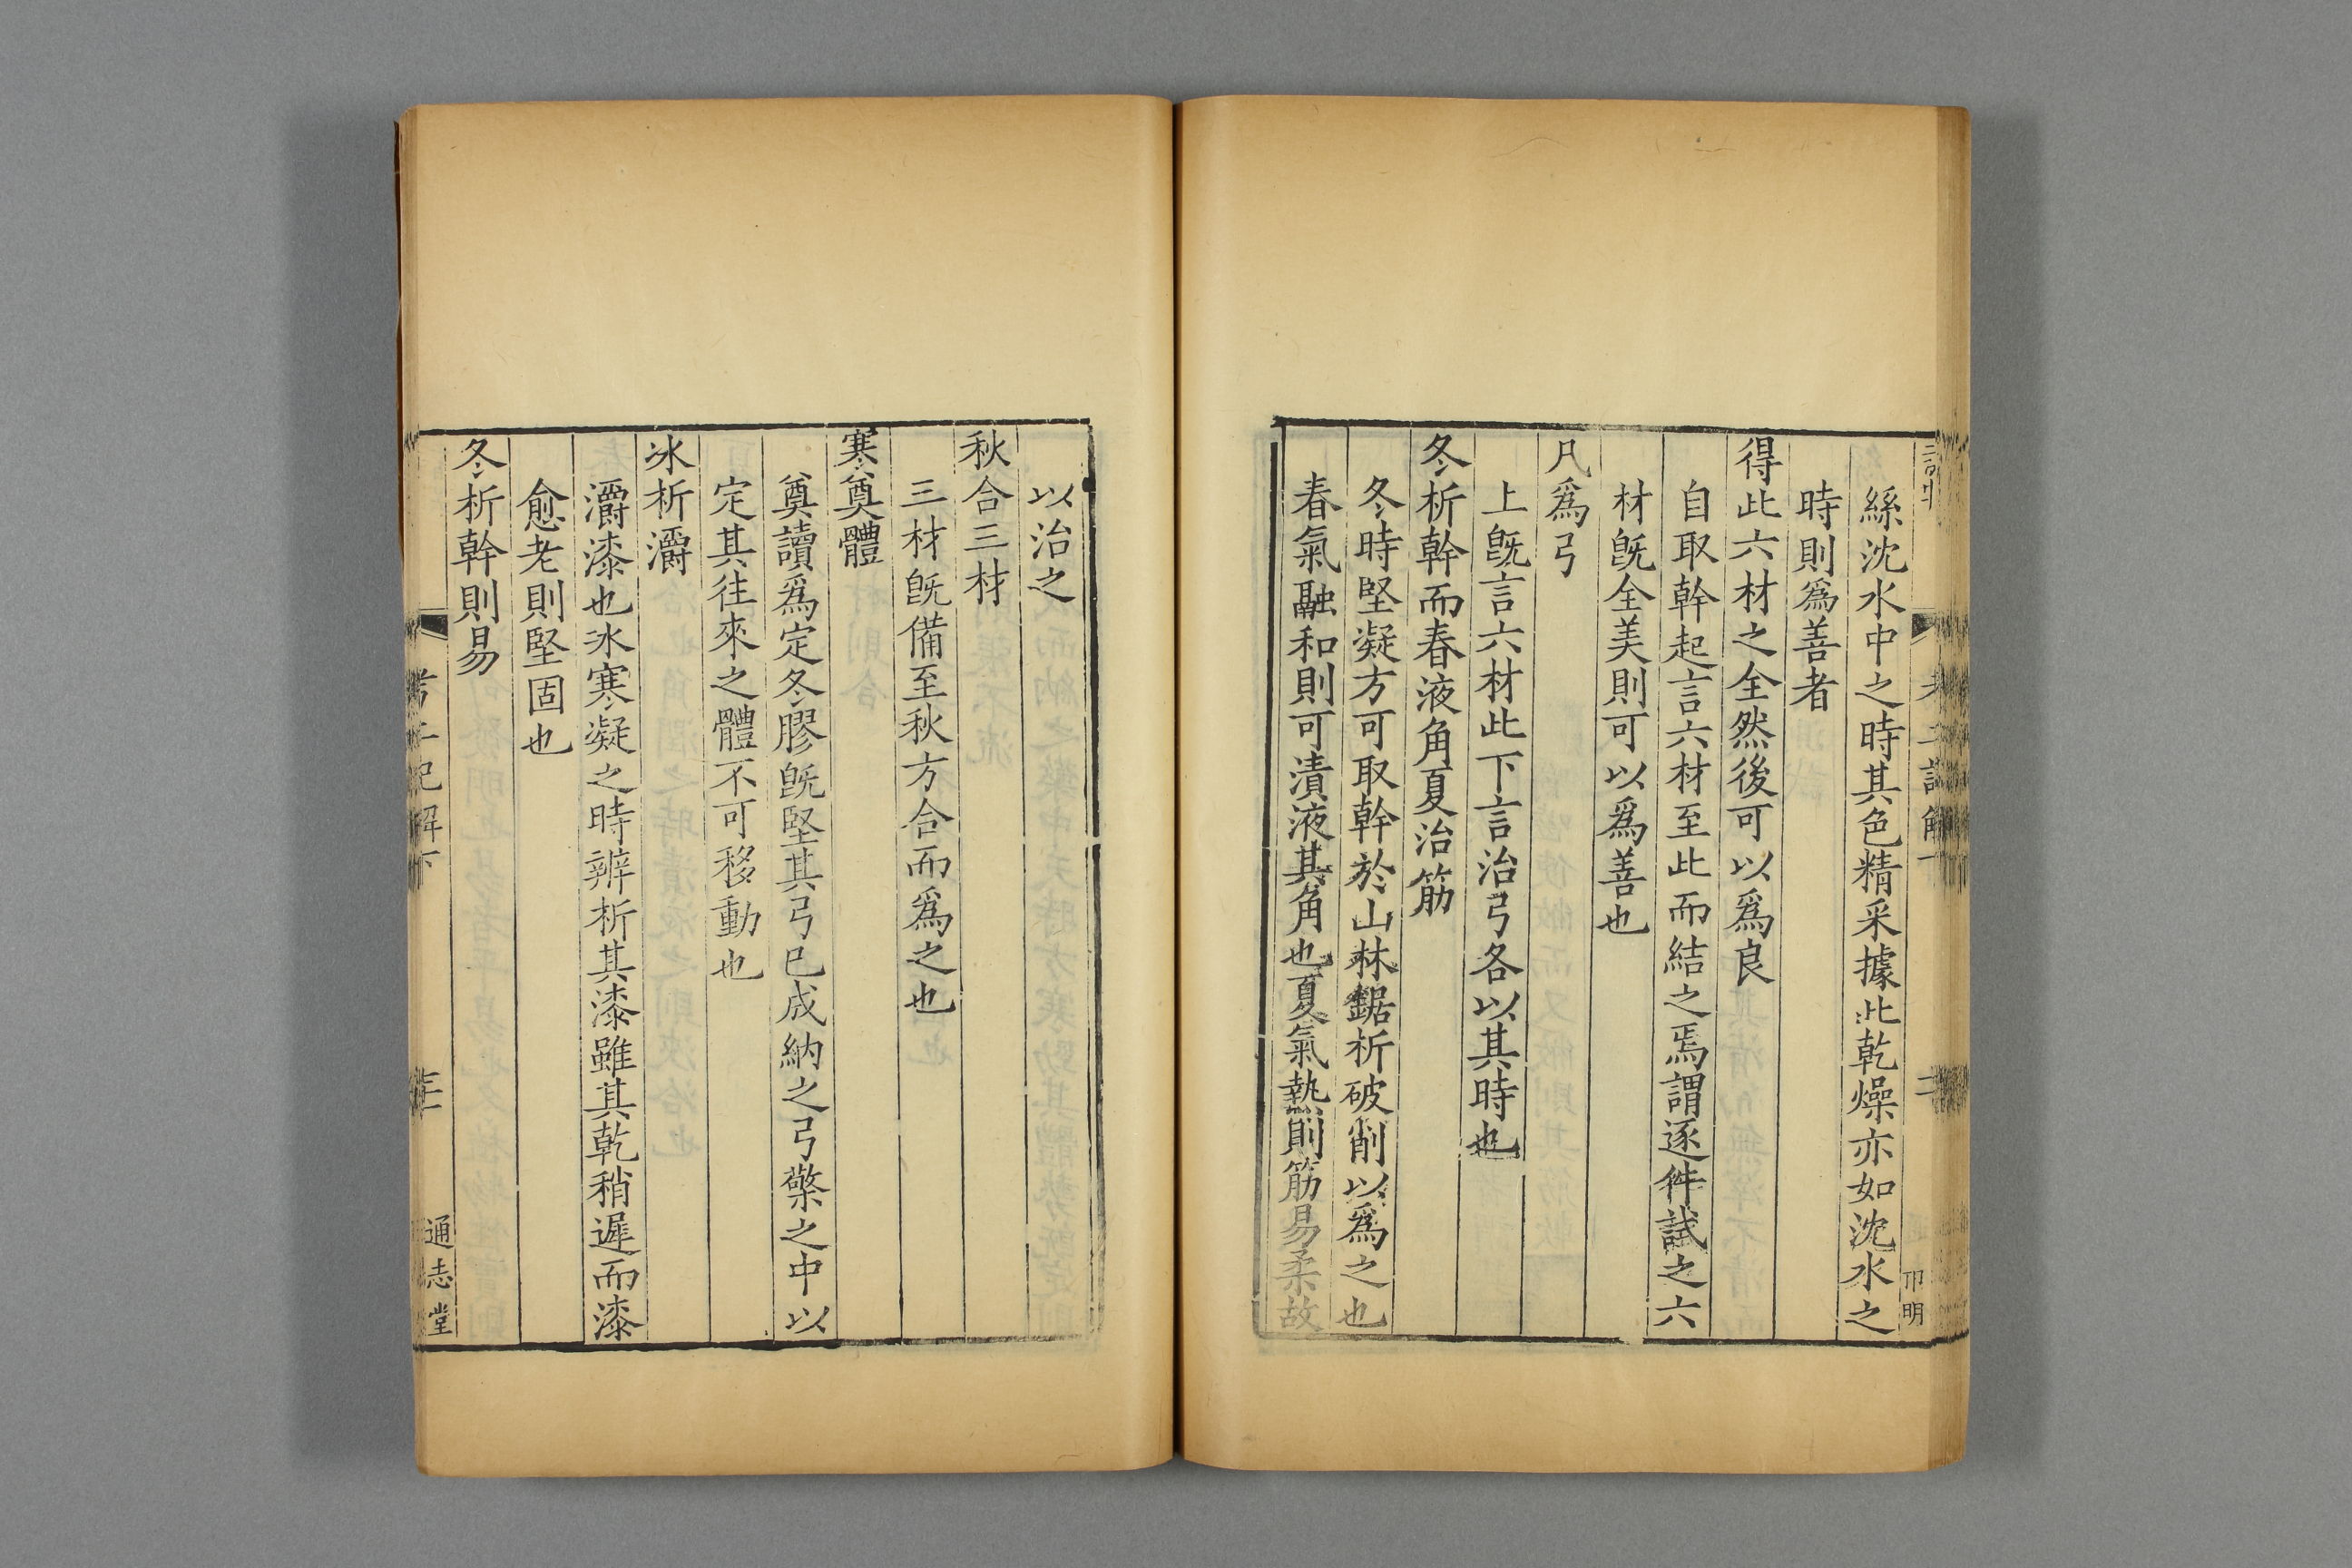 絲沈水中之時其色精采據此乾燥亦如沈水之
時則爲善者
得此六材之全然後可以爲良
自取幹起言六材至此而結之焉謂逐件試之六
材旣全美則可以爲善也
凡爲弓
上旣言六材此下言治弓各以其時也
冬析幹而春液角夏治筋
冬時堅凝方可取幹於山林鋸析破削以爲之也
春氣融和則可漬液其角也夏氣熱則筋易柔故
以治之
秋合三材
三材旣備至秋方合而爲之也
寒奠體
奠讀爲定冬膠旣堅其弓已成納之弓檠之中以
定其往來之體不可移動也
冰析灂
灂漆也冰寒凝之時辨析其漆雖其乾稍遲而漆
愈老則堅固也
冬析幹則易
考工記解下
通志堂